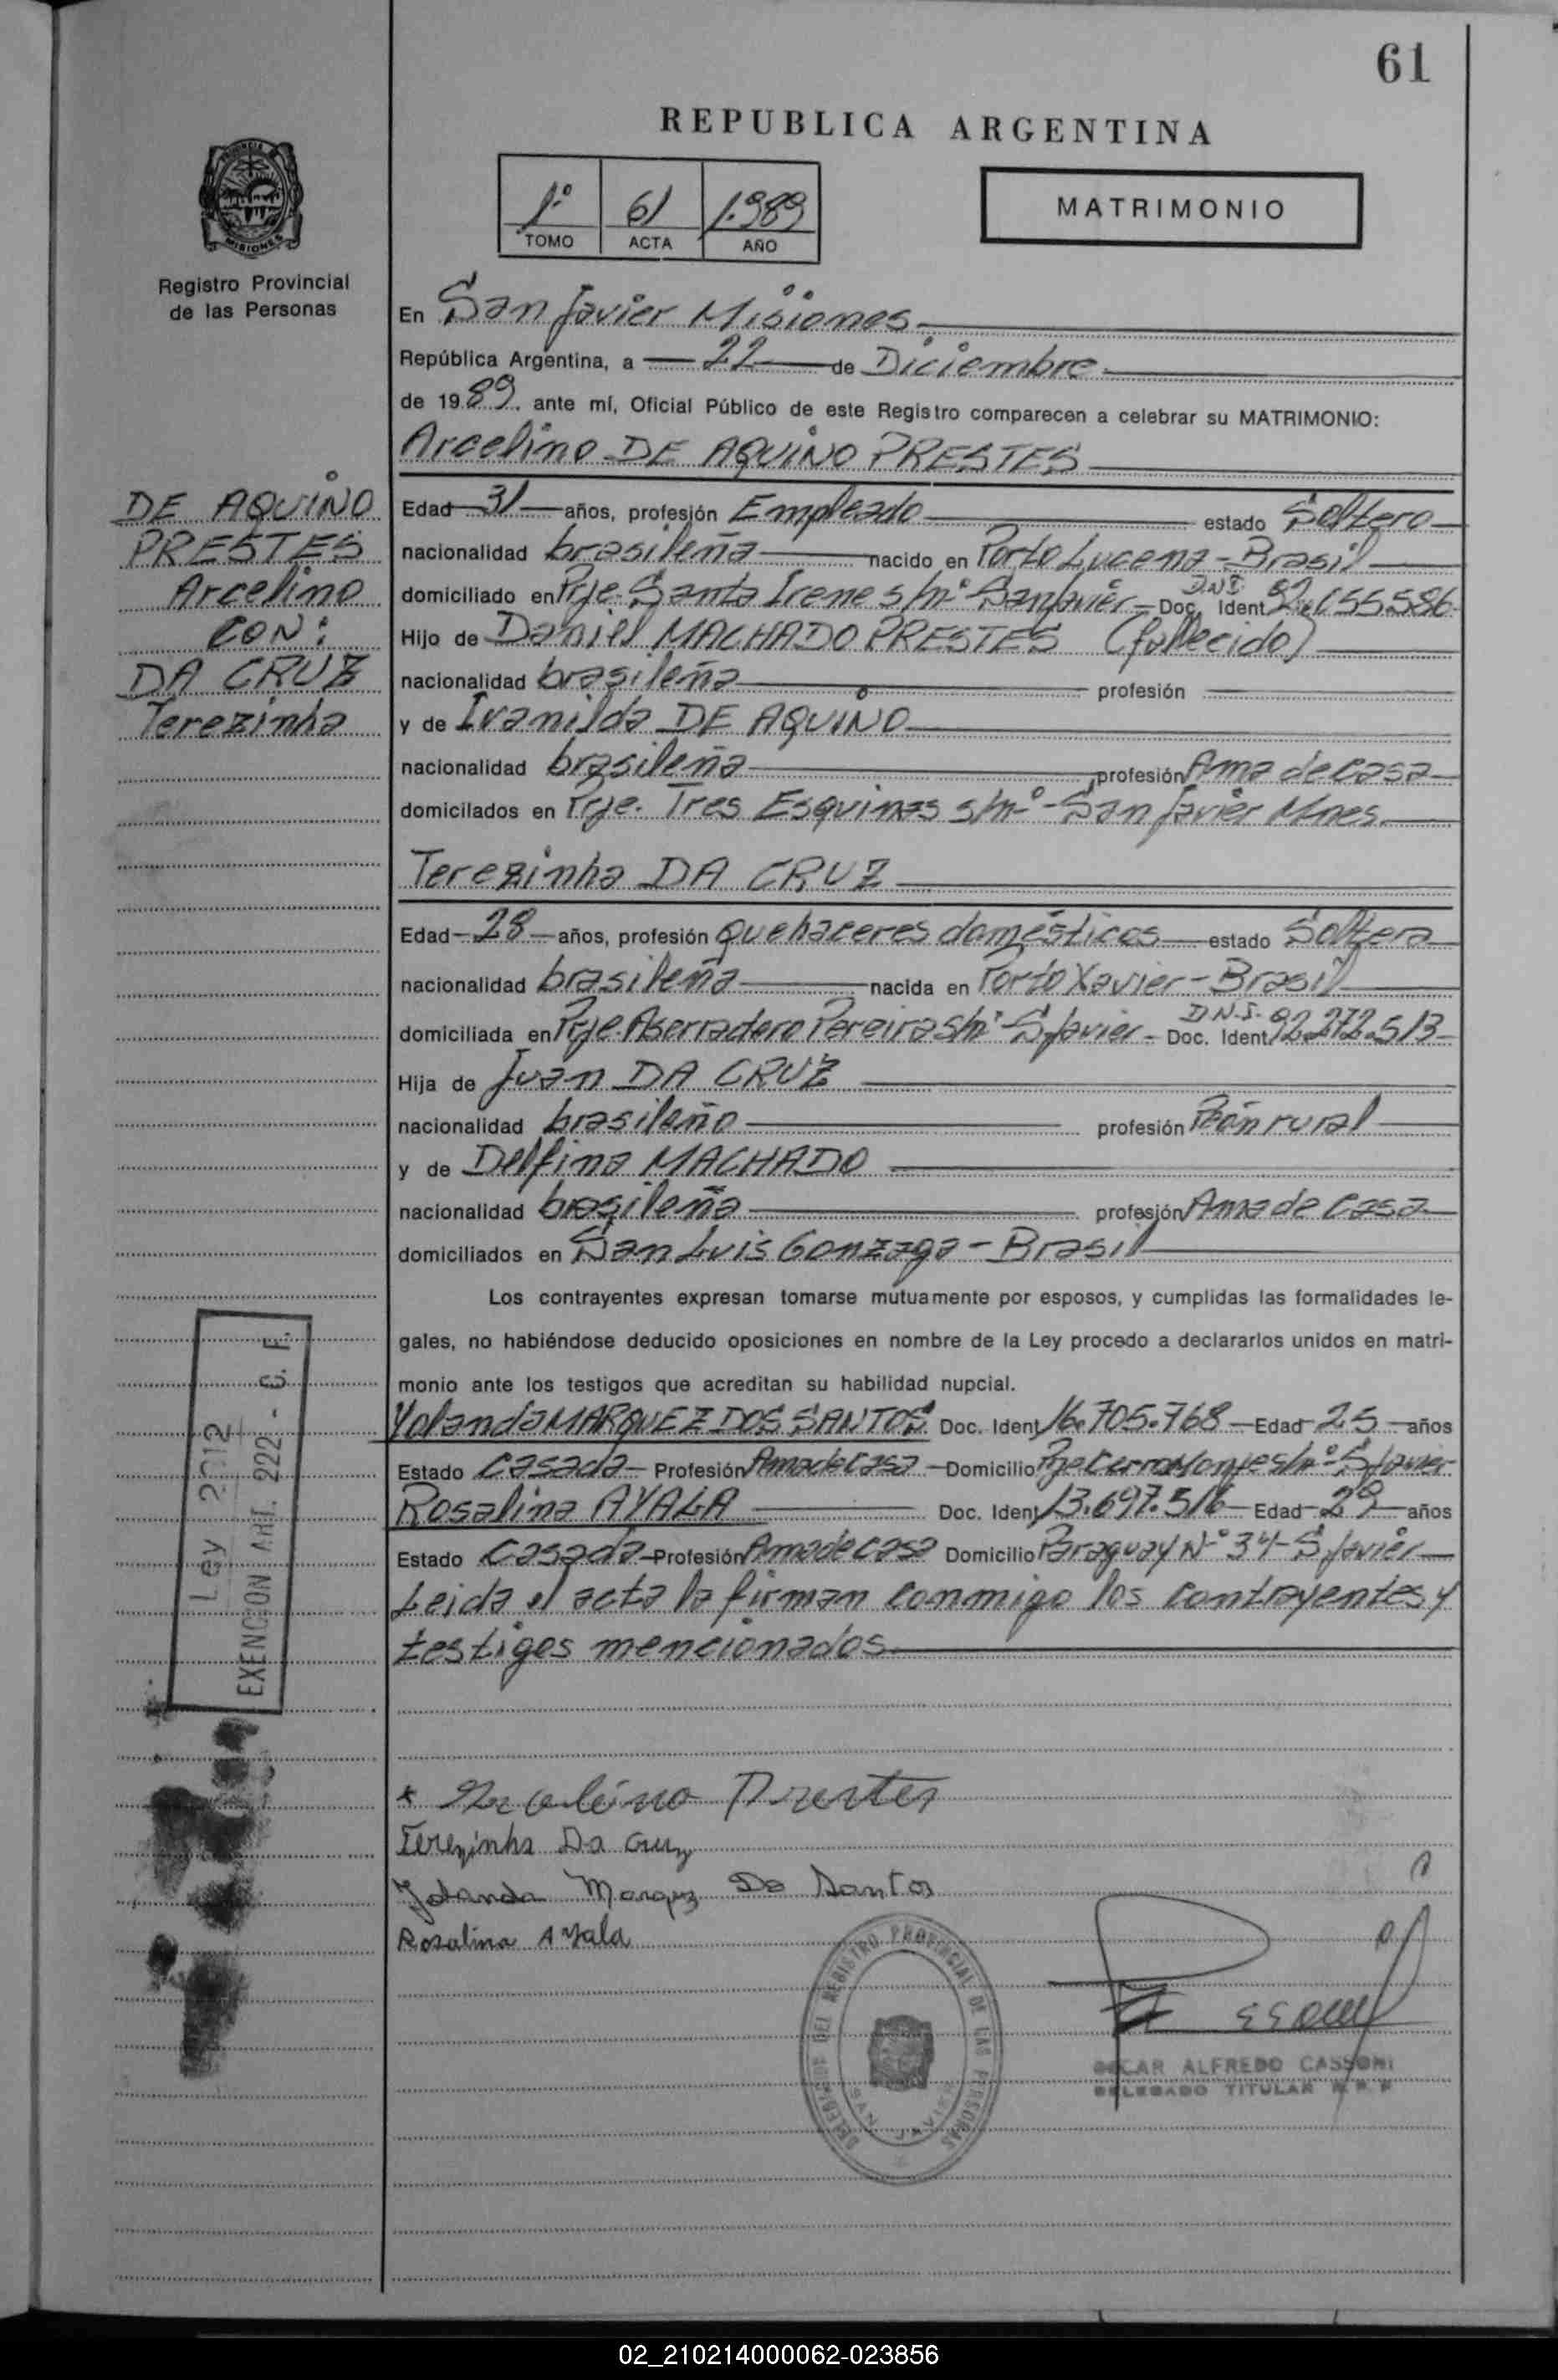 61
REPUBLICA ARGENTINA
1º 61 1.989
TOMO ACTA AÑO
MATRIMONIO
PROVINCIA DE MISIONES
Registro Provincial
de las Personas
En San Javier Misiones
República Argentina, a 22 de Diciembre
de 1989. ante mí, Oficial Público de este Registro comparecen a celebrar su MATRIMONIO:
Arcelino DE AQUINO PRESTES
DE AQUINO
PRESTES
Arcelino
CON:
DA CRUZ
Terezinha
Edad 31 años, profesión Empleado estado Soltero
nacionalidad brasileña nacido en Porto Lucena - Brasil
domiciliado en Pje. Santa Irene s/nº San Javier - Doc. Ident D.N.I. 92.155.586
Hijo de Daniel MACHADO PRESTES (fallecido)
nacionalidad brasileña profesión
y de Ivanilda DE AQUINO
nacionalidad brasileña profesión Ama de casa
domicilados en Pje. Tres Esquinas s/nº - San Javier Mnes.
Terezinha DA CRUZ
Edad 28 años, profesión quehaceres domésticos estado Soltera
nacionalidad brasileña nacida en Porto Xavier - Brasil
domiciliada en Pje. Aserradero Pereira s/nº S. Javier - Doc. Ident D.N.I. 92.272.513
Hija de Juan DA CRUZ
nacionalidad brasileño profesión Peón rural
y de Delfina MACHADO
nacionalidad brasileña profesión Ama de casa
domiciliados en San Luis Gonzaga - Brasil
Los contrayentes expresan tomarse mutuamente por esposos, y cumplidas las formalidades le-
gales, no habiéndose deducido oposiciones en nombre de la Ley procedo a declararlos unidos en matri-
monio ante los testigos que acreditan su habilidad nupcial.
Yolanda MARQUEZ DOS SANTOS Doc. Ident 16.705.768 Edad 25 años
Estado Casada Profesión Ama de casa Domicilio Pje Cerro Monje s/nº S. Javier
Rosalina AYALA Doc. Ident 13.697.516 Edad 29 años
Estado Casada Profesión Ama de casa Domicilio Paraguay Nº 34 - S. Javier
Leida el acta la firman conmigo los contrayentes y
testigos mencionados
Ley 2012
EXENCION ART. 222 - C. F.
Arcelino Prestes
Terezinha Da Cruz
Yolanda Marquez Do Santos
Rosalina Ayala
DELEGACION DEL REGISTRO PROVINCIAL DE LAS PERSONAS
SAN JAVIER
OSCAR ALFREDO CASSONI
DELEGADO TITULAR R. P. P.
02_210214000062-023856